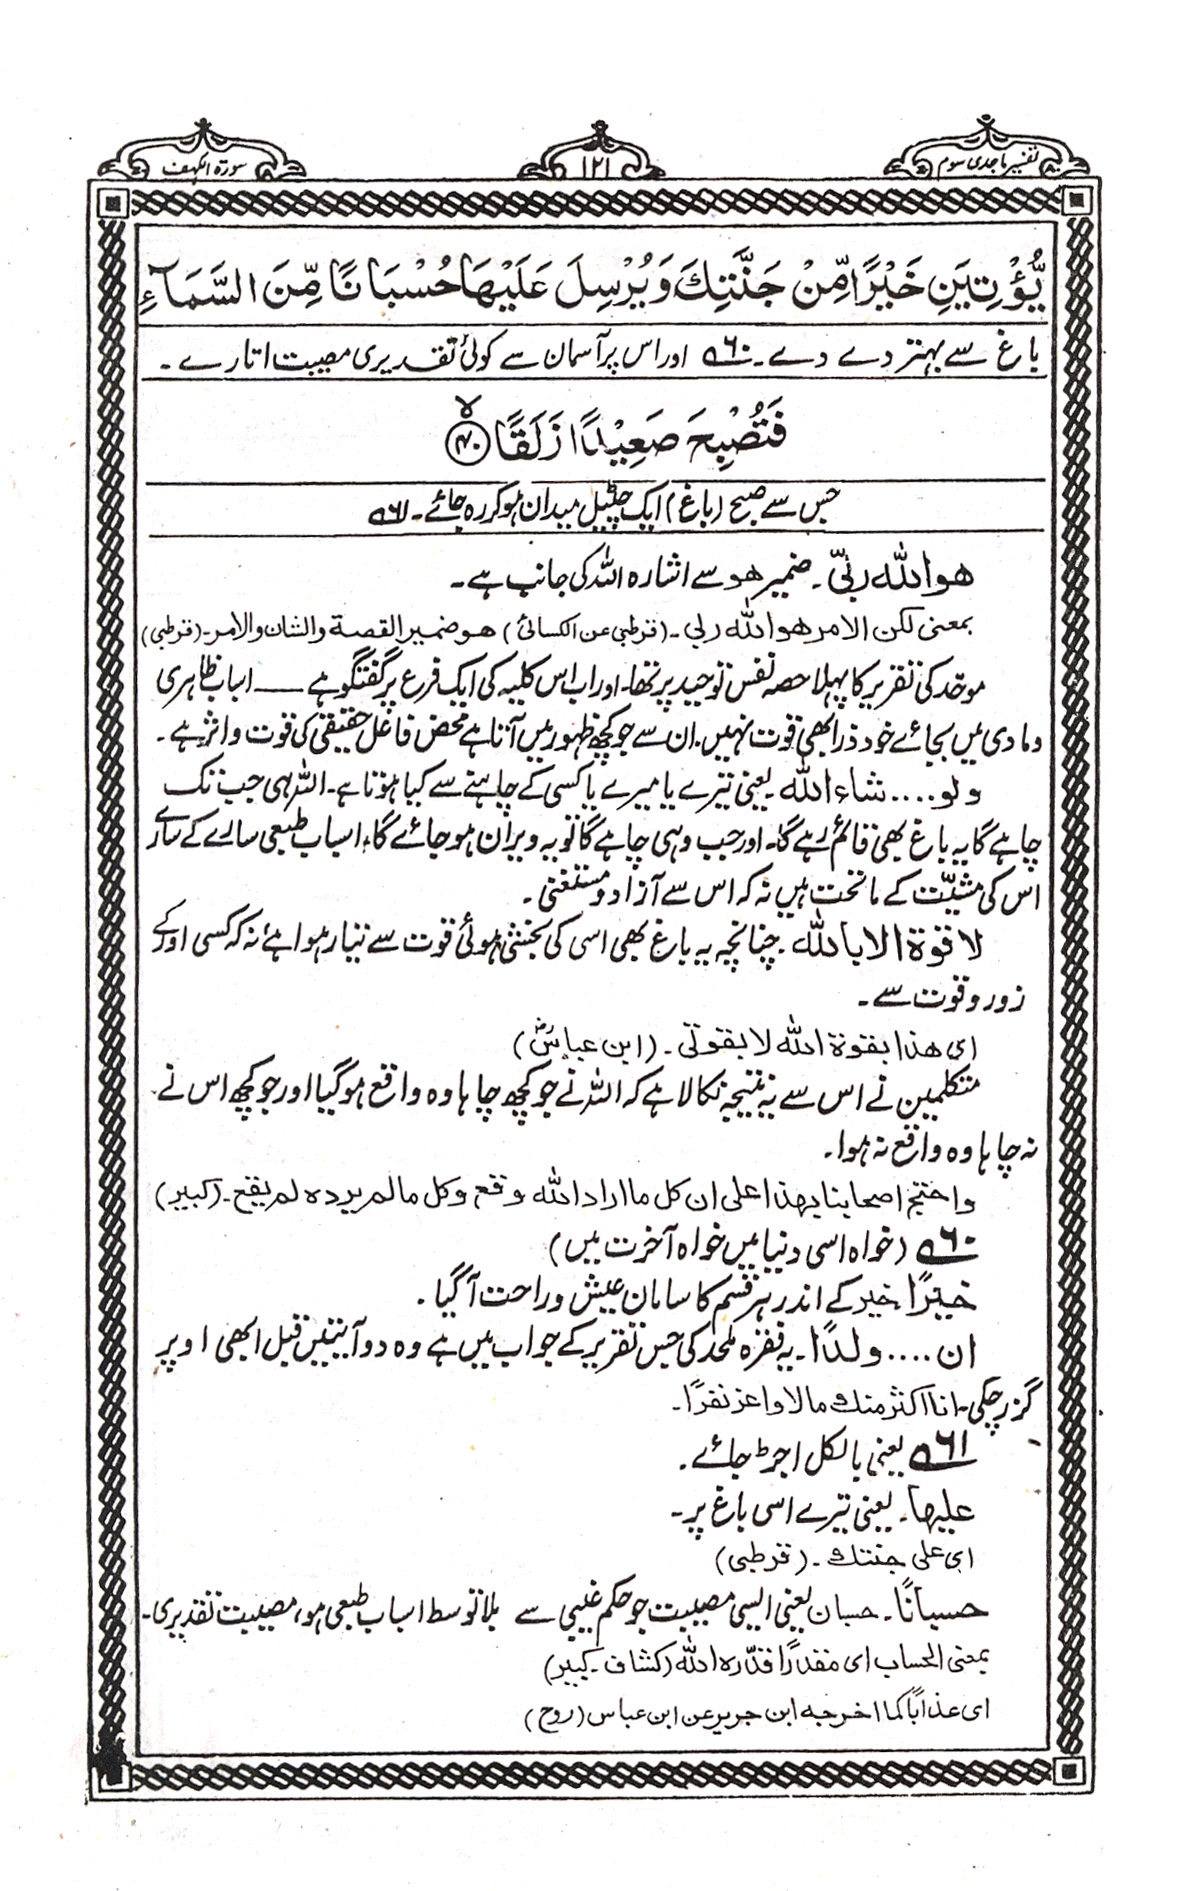 تفسیر ماجدی سوم
۱۲۱
سورۃ الکہف
یُّؤْتِیَنِ خَیْرًا مِّنْ جَنَّتِكَ وَیُرْسِلَ عَلَیْهَا حُسْبَانًا مِّنَ السَّمَآءِ
باغ سے بہتر دے دے۔ ۶۰ اور اس پر آسمان سے کوئی تقدیری مصیبت اتارے۔
فَتُصْبِحَ صَعِیْدًا زَلَقًا ۴۰ لا
جس سے صبح (باغ) ایک چٹیل میدان ہو کر رہ جائے۔ ۶۱
هو الله ربّی۔ ضمیر هو سے اشارہ اللہ کی جانب ہے۔
بمعنی لکن الامر هو الله ربی۔ (قرطبی عن الکسائی) هو ضمیر القصة والشان والامر۔ (قرطبی)
موحّد کی تقریر کا پہلا حصہ نفس توحید پر تھا۔ اور اب اس کلیہ کی ایک فرع پر گفتگو ہے —— اسباب ظاہری
و مادی میں بجائے خود ذرا بھی قوت نہیں۔ ان سے جو کچھ ظہور میں آتا ہے محض فاعل حقیقی کی قوت و اثر ہے۔
ولو.... شاء الله یعنی تیرے یا میرے یا کسی کے چاہنے سے کیا ہوتا ہے۔ اللہ ہی جب تک
چاہے گا یہ باغ بھی قائم رہے گا۔ اور جب وہی چاہے گا تو یہ ویران ہو جائے گا، اسباب طبعی سارے کے سارے
اس کی مشیّت کے ماتحت ہیں نہ کہ اس سے آزاد و مستغنی۔
لا قوة الا بالله۔ چنانچہ یہ باغ بھی اسی کی بخشی ہوئی قوت سے تیار ہوا ہے نہ کہ کسی اور کے
زور و قوت سے۔
ای هذا بقوة الله لا بقوتی۔ (ابن عباسؓ)
متکلمین نے اس سے یہ نتیجہ نکالا ہے کہ اللہ نے جو کچھ چاہا وہ واقع ہو گیا اور جو کچھ اس نے
نہ چاہا وہ واقع نہ ہوا۔
واحتج اصحابنا بهذا علی ان کل ما اراد الله وقع وکل ما لم یرده لم یقع۔ (کبیر)
۶۰ (خواہ اسی دنیا میں خواہ آخرت میں)
خیرًا خیر کے اندر ہر قسم کا سامان عیش و راحت آ گیا۔
ان .... ولدًا۔ یہ فقرہ ملحد کی جس تقریر کے جواب میں ہے وہ دو آیتیں قبل ابھی اوپر
گزر چکی۔ انا اکثر منك مالا واعز نفرًا۔
۶۱ یعنی بالکل اجڑ جائے۔
علیها۔ یعنی تیرے اسی باغ پر۔
ای علی جنتك۔ (قرطبی)
حسبانًا۔ حسبان یعنی ایسی مصیبت جو حکم غیبی سے بلا توسط اسباب طبعی ہو، مصیبت تقدیری۔
بمعنی الحساب ای مقدارًا قدّره الله (کشاف۔ کبیر)
ای عذابًا کما اخرجه ابن جریر عن ابن عباس (روح)